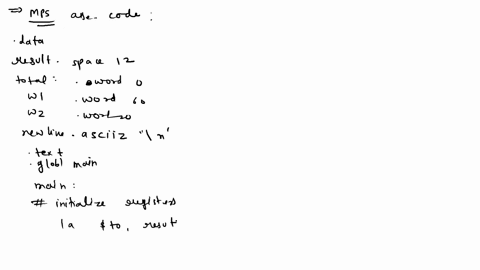 ⇒ MPS ase code :
.data
result . space 12
total : . word 0
w1 . word 60
w2 . word 20
newline . asciiz "\n"
. text
. globl main
main :
# initialize registers
la $t0, resut